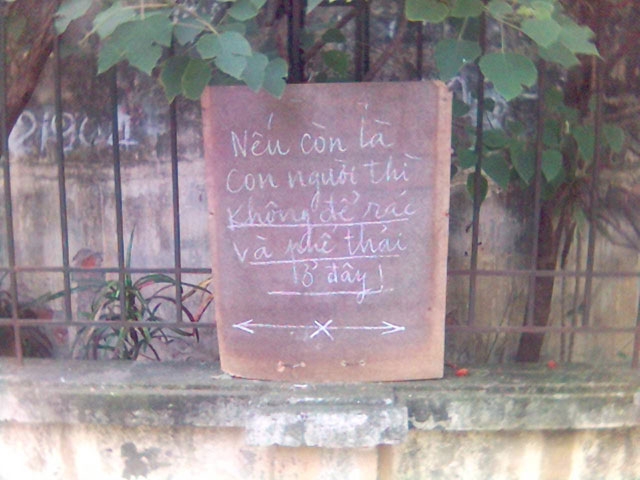 Nếu còn là
con người thì
không để rác
và phế thải
ở đây!